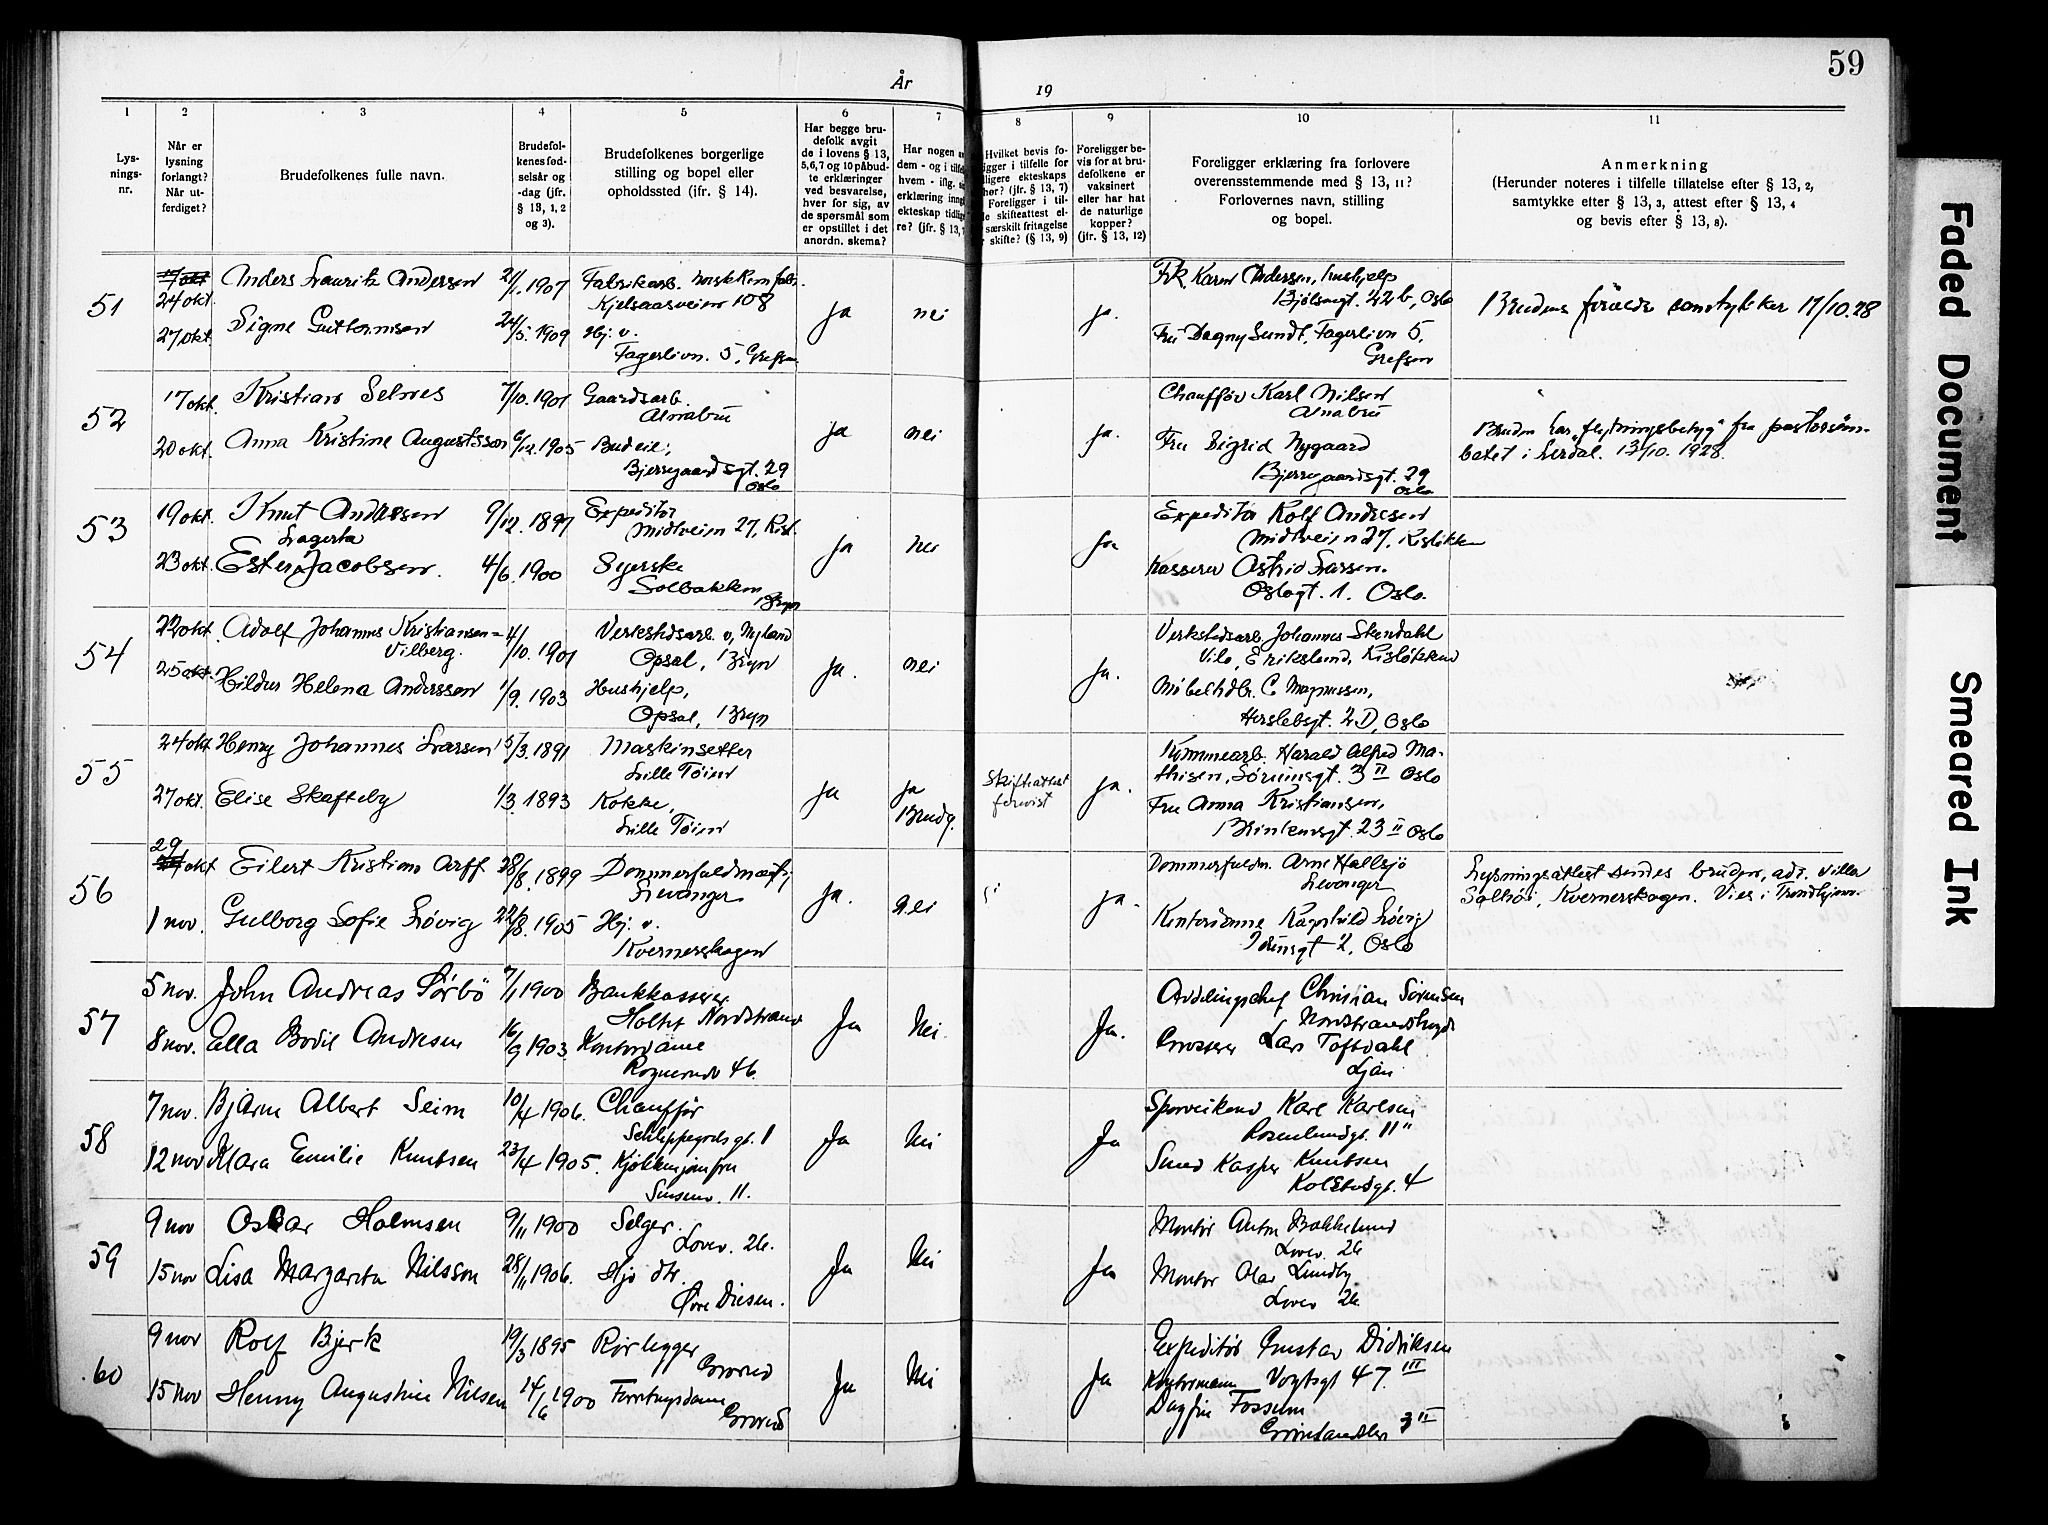 År 19
59
1 2 3 4 5 6 7 8 9 10 11
Lys-
nings-
nr.
Når er
lysning
forlangt?
Når ut-
ferdiget?
Brudefolkenes fulle navn.
Brudefol-
kenes fød-
selsår og
-dag (jfr.
§ 13, 1, 2
og 3).
Brudefolkenes borgerlige
stilling og bopel eller
opholdssted (ifr. § 14).
Har begge bru-
defolk avgit
de i lovens § 13,
5,6,7 og 10 påbud-
te erklæringer
ved besvarelse,
hver for sig, av
de spørsmål som
er opstillet i det
anordn. skema?
Har nogen
dem - og i tilfe
hvem - iflg.
erklæring inng
ekteskap tidlig
re? (jfr. § 13,
Hvilket bevis fo-
ligger i tilfelle for
dligere ekteskaps
hør? (jfr. § 13, 7)
Foreligger i til-
le skifteattest el-
særskilt fritagelse
skifte? (§ 13, 9)
Foreligger be-
vis for at bru-
defolkene er
vaksinert
eller har hat
de naturlige
kopper?
(jfr. § 13, 12)
Foreligger erklæring fra forlovere
overensstemmende med § 13, 11?
Forlovernes navn, stilling
og bopel.
Anmerkning
(Herunder noteres i tilfelle tillatelse efter § 13, 2,
samtykke efter § 13, 3, attest efter § 13, 4
og bevis efter § 13, 8).
51
24 okt.
27 okt.
Anders Lauritz Andersen 2/1. 1907
Signe Guttormsen 24/5. 1909
Fabrikarb.
Kjelsaasveien 108
Hj. v.
Fagerlivn. 5, Grefsen
ja nei ja.
Frk. Karen Andersen, hushjelp
Bjølsengt. 22 b, Oslo
Fru Dagny Sundt, Fagerlivn 5,
Grefsen
Brudens forældre samtykker 17/10.28
52
17 okt.
20 okt.
Kristian Selnes 7/10. 1901
Anna Kristine Augustsson 6/12. 1905
Gaardsarb.
Alnabru
Budeie;
Bjerregaardsgt. 29
Oslo
ja nei ja.
Chauffør Karl Nilsen
Alnabru
Fru Sigrid Nygaard
Bjerregaardsgt. 29
Oslo
Bruden har "flytningsbetyg" fra pastorsäm-
betet i Lerdal. 13/10. 1928.
53
19 okt.
23 okt.
Knut Andresen 9/12. 1897
Lagerta
Ester Jacobsen. 4/6. 1900
Expeditør
Midtveien 27,
Syerske
Solbakken
Bryn
ja nei ja
Expeditør Rolf Andresen
Midtveien 27,
Kasserer Astrid Larsen.
Oslogt. 1. Oslo.
54
22 okt.
25 okt.
Adolf Johannes Kristiansen- 4/10. 1901
Vilberg.
Hildur Helena Anderssen 1/9. 1903
Verkstedsarb. v. Nyland
Opsal, Bryn
Hushjelp,
Opsal, Bryn
ja. nei ja.
Verkstedsarb. Johannes Skendahl
Møbelhdlr. C. Magnussen,
Herslebsgt. 2 D, Oslo
55
24 okt
27 okt.
Henry Johannes Larsen 15/3. 1891
Elise Skafteby 1/3. 1893
Maskinsetter
Lille Tøien
Kokke,
Lille Tøien
ja ja
Brudg.
Skifteattest
forevist
ja.
Harald Alfred Ma-
thisen, Sørumsgt. 3 II Oslo
Fru Anna Kristiansen,
Brinkensgt. 23 II Oslo
56
29 okt
1 nov.
Eilert Kristian Arff 28/8. 1899
Gulborg Sofie Løvig 22/8. 1905
Dommerfuldmægtig
Levanger
Hj. v.
Kvernerskogen
ja. nei ja.
Dommerfuldm. Arne Hallsjø
Levanger
Kontordame Ragnhild Løvig
2, Oslo
Lysningsattest sendes bruden, adr. villa
Solhøi, Kvernerskogen. Vies i Trondhjem.
57
5 nov.
8 nov.
John Andreas Sørbö 7/1 1900
Ella Bodil Andresen 16/9 1903
Bankkasserer
Holtet Nordstrand
Kontordame
46.
Ja Nei. Ja.
Avdelingschef Christian Sørensen
Nordstrandshøgda
Grosserer Lars Toftdahl
Ljan
58
7 nov.
12 nov
Bjarne Albert Seim 10/4 1906.
Klara Emilie Knutsen 23/4 1905.
Chauffør
Schleppegrels gt. 1
Kjøkkenjomfru
Sinsenv. 11.
Ja Nei Ja
Sporveiksend Karl Karlsen
Rosenlundgt. 11"
Smed Kasper Knutsen
Kolstadgt. 4
59
9 nov
15 nov
Oskar Holmsen 9/11 1900
Lisa Margareta Nilsson 28/11 1906.
Selger.
Lovev. 26.
Hjv dtr.
Øvre Disen.
Ja Nei Ja
Montør Anton Bakkelund
Lovev. 26
Montør Olav Lundby
Lovev 26
60
9 nov
15 nov
Rolf Bjerk 19/3 1895
Henny Augustine Nilsen 14/6 1900
Rørlegger
Grorud
Forretningsdame
Grorud
Ja Nei Ja
Expeditør Gustav Didriksen
Vogtsgt 47. III
Kontormann
Dagfin Fossum
Grønlandsler 3 II
Faded Document
Smeared Ink